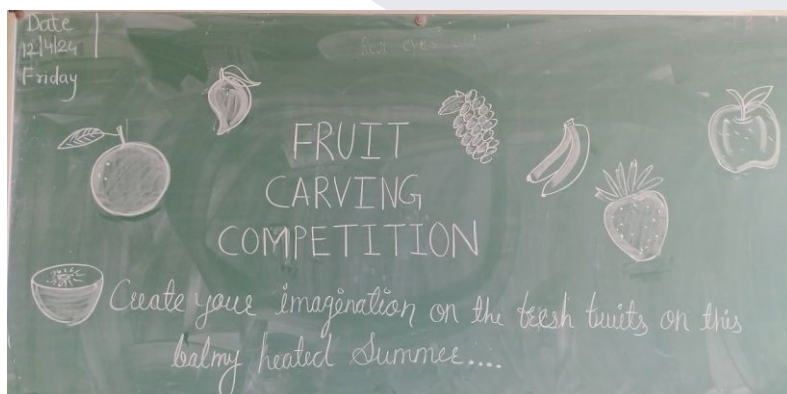 Date
12/4/24
Friday
FRUIT
CARVING
COMPETITION
Create your imagination on the fresh fruits on this
balmy heated Summer....